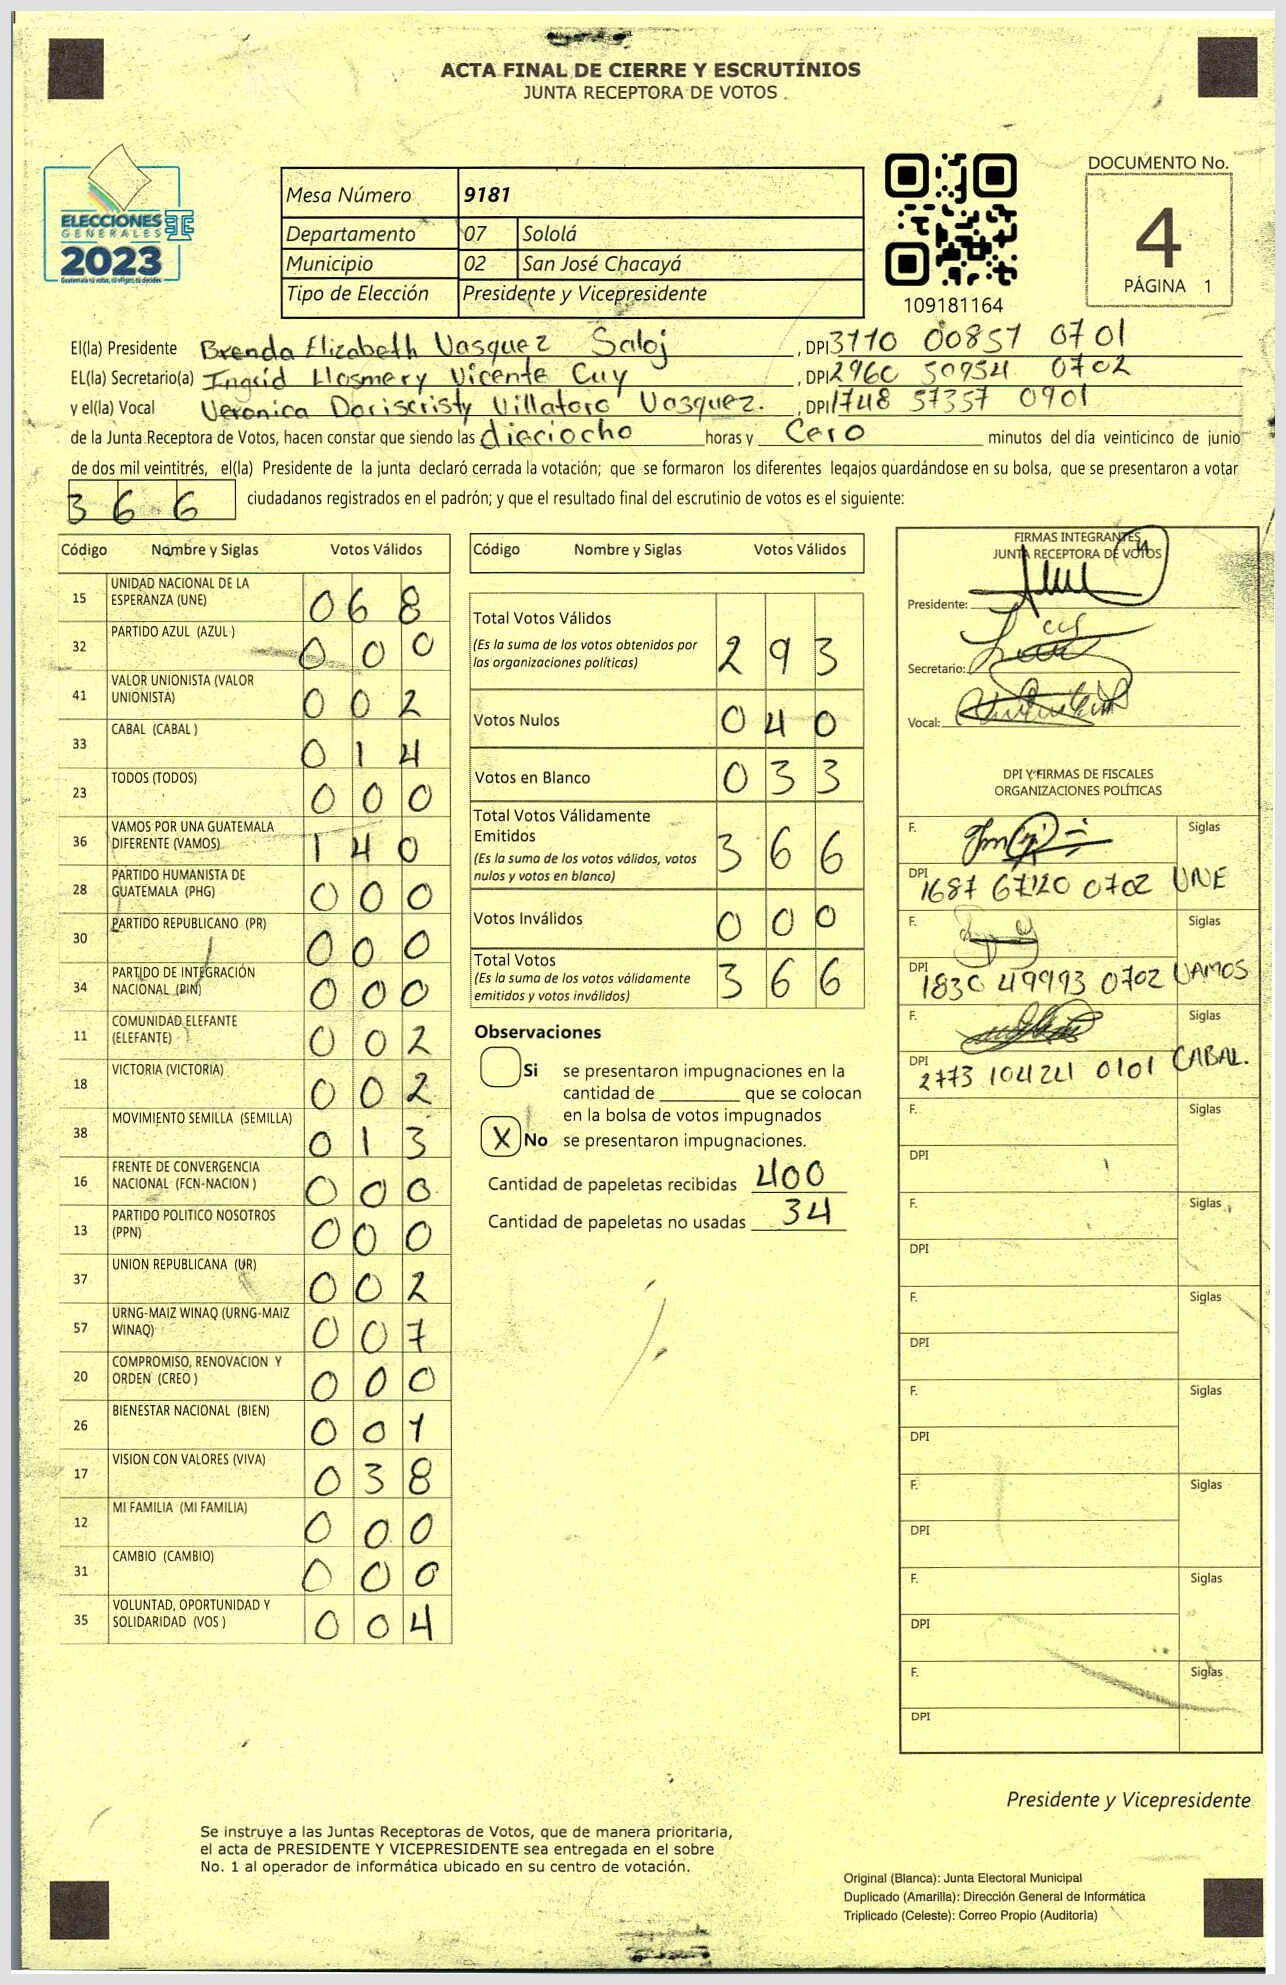 ACTA FINAL DE CIERRE Y ESCRUTÍNIOS
JUNTA RECEPTORA DE VOTOS
ELECCIONES
GENERALES
2023
Mesa Número 9181
Departamento 07 Sololá
Municipio 02 San José Chacayá
Tipo de Elección Presidente y Vicepresidente
109181164
DOCUMENTO No.
4
PÁGINA 1
El(la) Presidente Brenda Elizabeth Vasquez Saloj, DPI 3110 00857 0701
EL(la) Secretario(a) Ingrid Vicente Cuy, DPI 2960 50934 0702
y el(la) Vocal Veronica Doriscristy Villatoro Vasquez., DPI 1748 57357 0901
de la Junta Receptora de Votos, hacen constar que siendo las dieciocho horas y Cero minutos del día veinticinco de junio
de dos mil veintitrés, el(la) Presidente de la junta declaró cerrada la votación; que se formaron los diferentes legajos guardándose en su bolsa, que se presentaron a votar
366 ciudadanos registrados en el padrón; y que el resultado final del escrutinio de votos es el siguiente:
Código Nombre y Siglas Votos Válidos
15 UNIDAD NACIONAL DE LA ESPERANZA (UNE) 068
32 PARTIDO AZUL (AZUL ) 000
41 VALOR UNIONISTA (VALOR UNIONISTA) 002
33 CABAL (CABAL ) 014
23 TODOS (TODOS) 000
36 VAMOS POR UNA GUATEMALA DIFERENTE (VAMOS) 140
28 PARTIDO HUMANISTA DE GUATEMALA (PHG) 000
30 PARTIDO REPUBLICANO (PR) 000
34 PARTIDO DE INTEGRACIÓN NACIONAL (PIN) 000
11 COMUNIDAD ELEFANTE (ELEFANTE) 002
18 VICTORIA (VICTORIA) 002
38 MOVIMIENTO SEMILLA (SEMILLA) 013
16 FRENTE DE CONVERGENCIA NACIONAL (FCN-NACION ) 000
13 PARTIDO POLITICO NOSOTROS (PPN) 000
37 UNION REPUBLICANA (UR) 002
57 URNG-MAIZ WINAQ (URNG-MAIZ WINAQ) 007
20 COMPROMISO, RENOVACION Y ORDEN (CREO ) 000
26 BIENESTAR NACIONAL (BIEN) 001
17 VISION CON VALORES (VIVA) 038
12 MI FAMILIA (MI FAMILIA) 000
31 CAMBIO (CAMBIO) 000
35 VOLUNTAD, OPORTUNIDAD Y SOLIDARIDAD (VOS ) 004
Código Nombre y Siglas Votos Válidos
Total Votos Válidos 293
(Es la suma de los votos obtenidos por
las organizaciones políticas)
Votos Nulos 040
Votos en Blanco 033
Total Votos Válidamente
Emitidos 366
(Es la suma de los votos válidos, votos
nulos y votos en blanco)
Votos Inválidos 000
Total Votos 366
(Es la suma de los votos válidamente
emitidos y votos inválidos)
Observaciones
Si se presentaron impugnaciones en la
cantidad de ________ que se colocan
en la bolsa de votos impugnados
X No se presentaron impugnaciones.
Cantidad de papeletas recibidas 400
Cantidad de papeletas no usadas 34
FIRMAS INTEGRANTES
JUNTA RECEPTORA DE VOTOS
Presidente:
Secretario:
Vocal:
DPI Y FIRMAS DE FISCALES
ORGANIZACIONES POLÍTICAS
F. Siglas
DPI 1687 67120 0702 UNE
F. Siglas
DPI 1830 49993 0702 VAMOS
F. Siglas
DPI 2773 104241 0101 CABAL.
F. Siglas
DPI
F. Siglas
DPI
F. Siglas
DPI
F. Siglas
DPI
F. Siglas
DPI
F. Siglas
DPI
F. Siglas
DPI
Presidente y Vicepresidente
Se instruye a las Juntas Receptoras de Votos, que de manera prioritaria,
el acta de PRESIDENTE Y VICEPRESIDENTE sea entregada en el sobre
No. 1 al operador de informática ubicado en su centro de votación.
Original (Blanca): Junta Electoral Municipal
Duplicado (Amarilla): Dirección General de Informática
Triplicado (Celeste): Correo Propio (Auditoría)